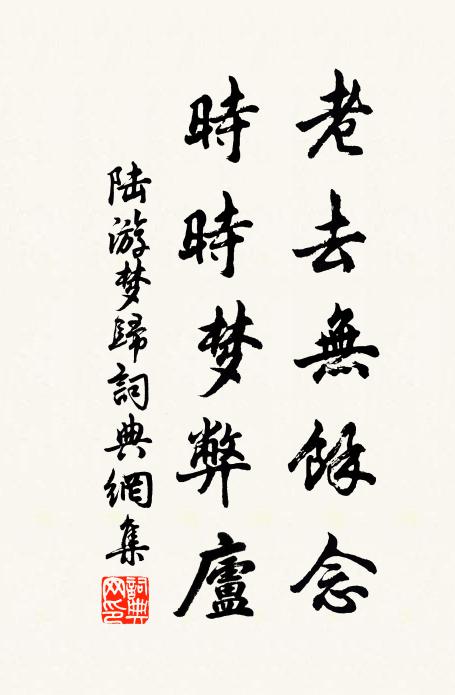 老去無餘念
時時梦弊廬
陸游梦歸詞典網集
詞典网印